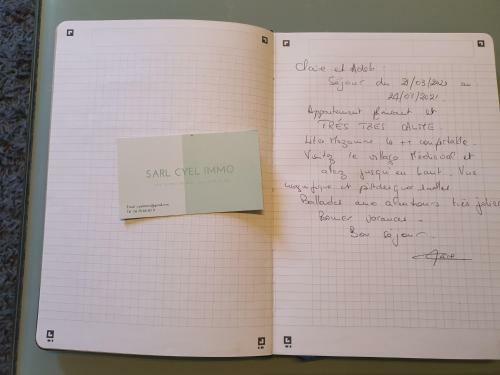 SARL CYEL IMMO
Claire et
Séjour du 21/03/2021 au
24/03/2021
Appartement plaisant et
TRÈS TRÈS CALME
Lits Mezzanine le ++ confortable.
Visitez le village Médiéval et
allez jusqu'en haut. Vue
magnifique et
Ballades aux alentours très jolies
Bonnes vacances.
Bon séjour.